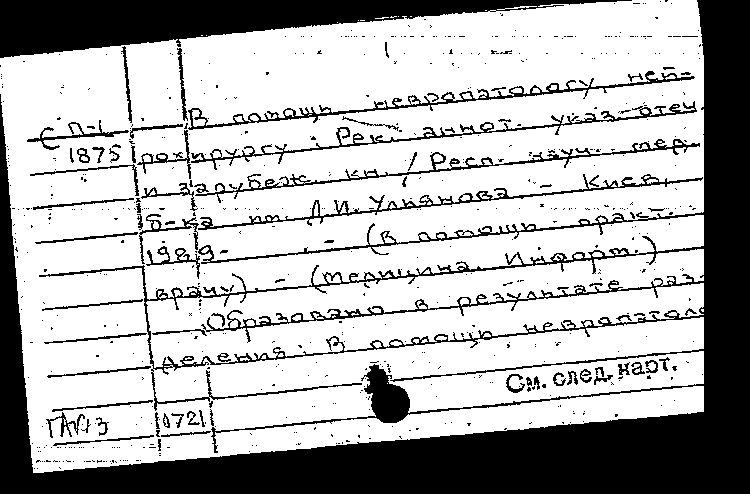 С П-1
1875
В помощь невропатологу, ней-
рохирургу : Рек. аннот. указ. отеч.
и зарубеж. кн. / Респ. науч. мед.
б-ка им. Д.И. Ульянова. - Киев,
1989- . - (В помощь практ.
врачу). - (Медицина. Информ.)
Образовано в результате раз-
деления: В помощь невропатоло
См. след. карт.
0721